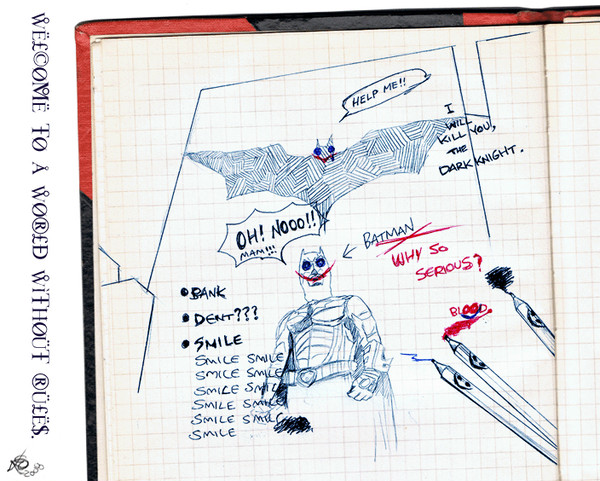 WELCOME TO A WORLD WITHOUT RULES.
HELP ME!!
I
WILL
KILL YOU,
THE
DARK KNIGHT.
OH! NOOO!!
MAM!!!
BATMAN
WHY SO
SERIOUS?
BLOOD
BANK
DENT???
SMILE
SMILE SMILE
SMILE SMILE
SMILE SMILE
SMILE SMILE
SMILE SMILE
SMILE
2008